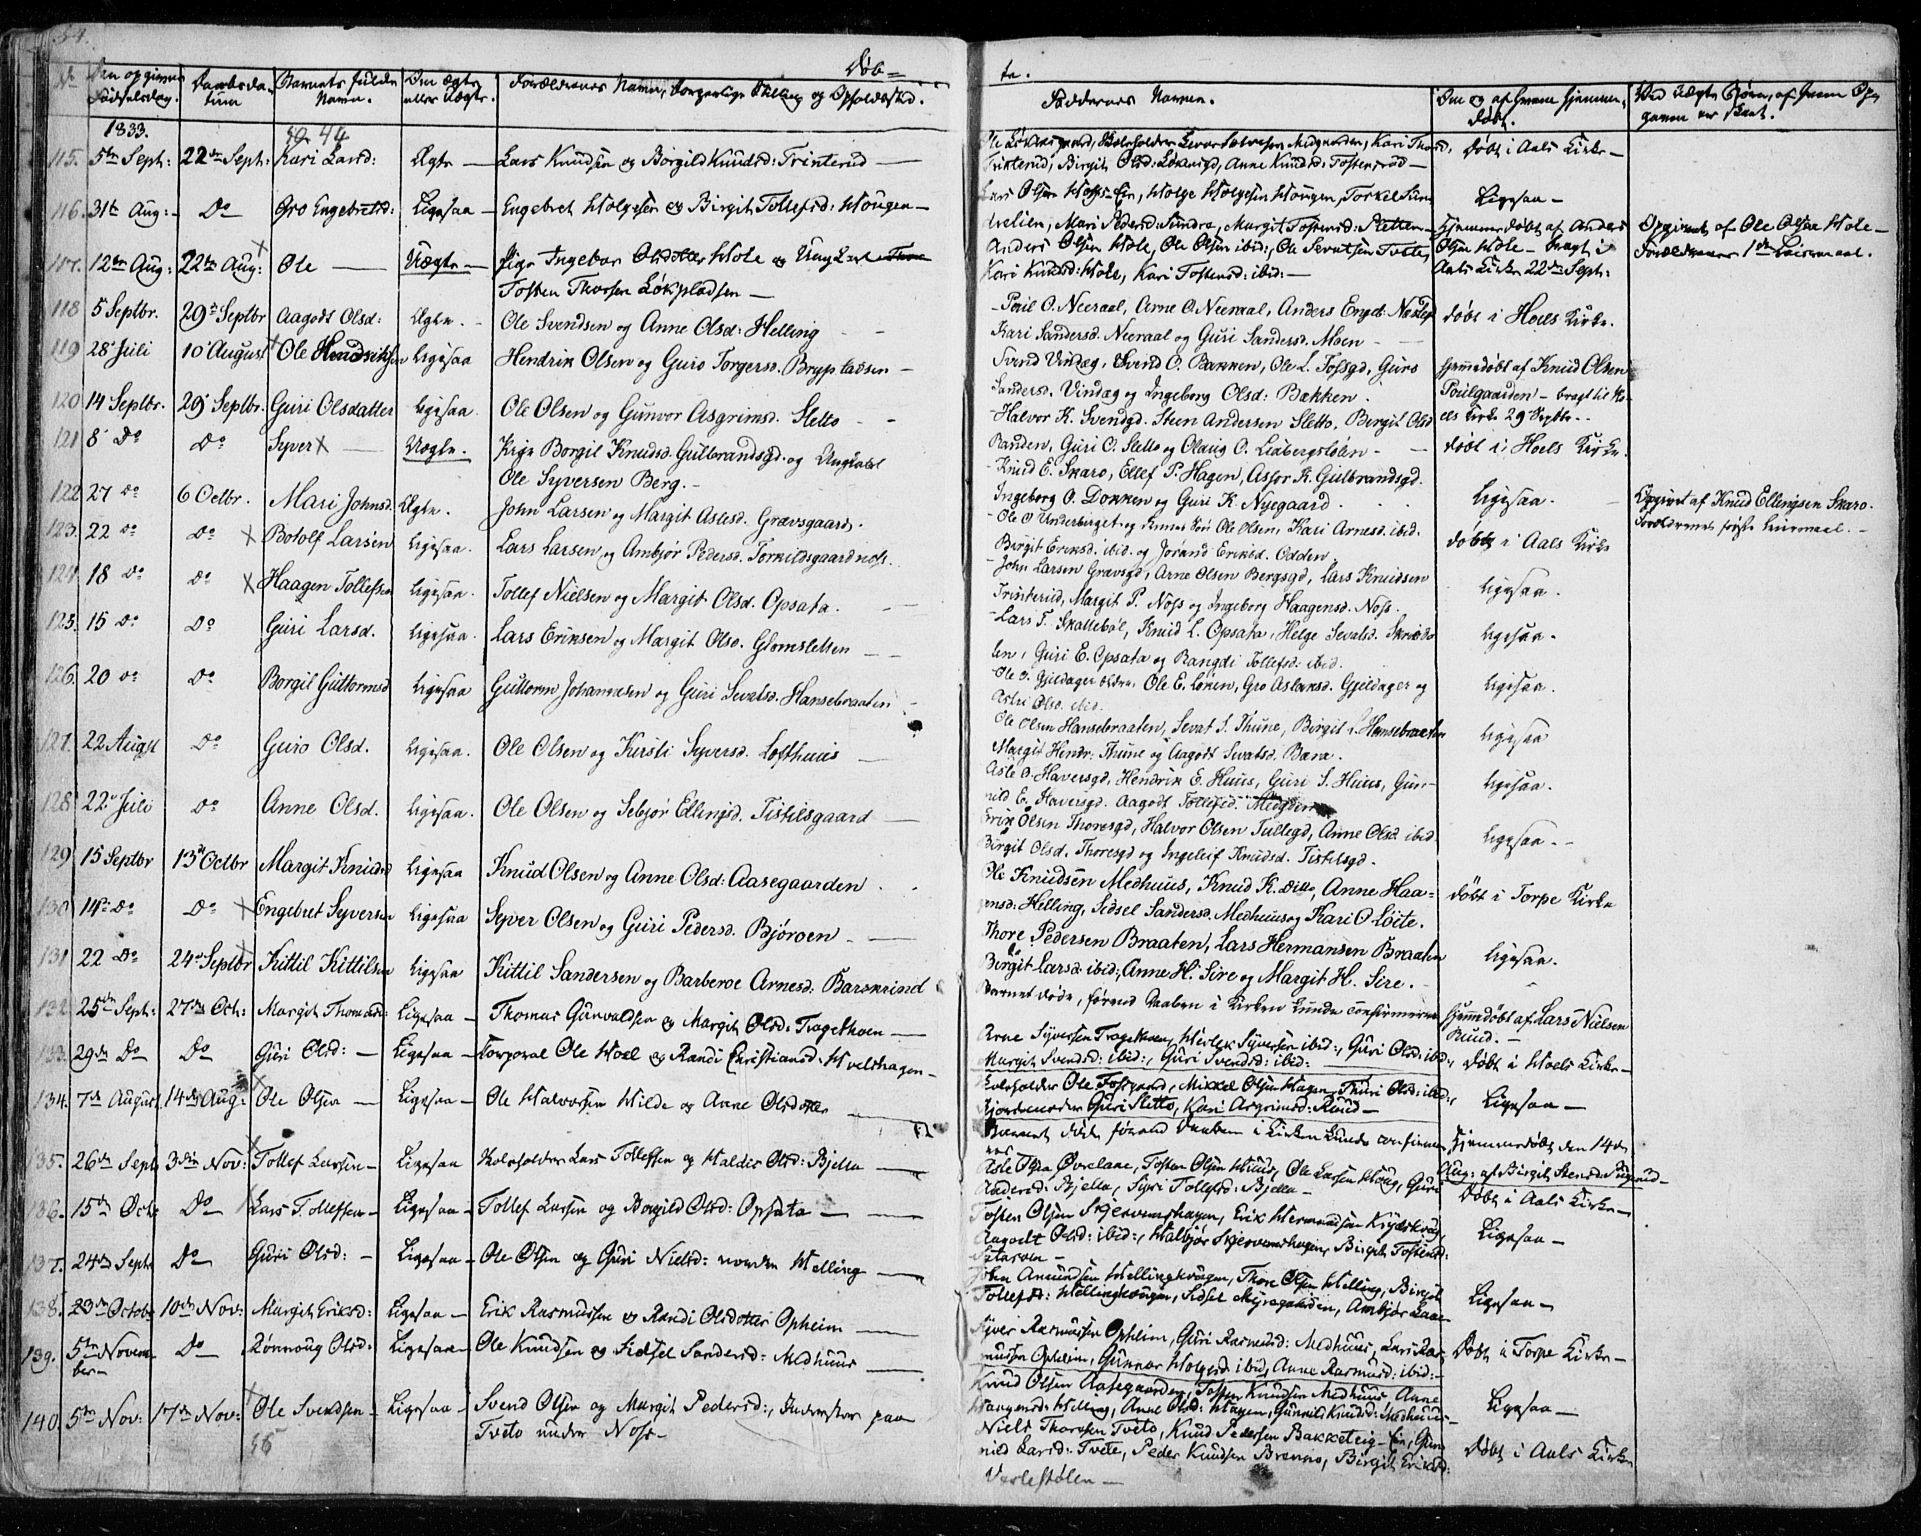 54.
Døb=
te.
№
Den opgivne Fødselsdag.
Daabsdatum
Barnets fulde Navn.
Om ægte eller Uægte.
Forældrenes Navne, borgerlige Stilling og Opholdssted.
Faddernes Navne.
Om og af hvem hjemmedøbt.
Ved uægte Børn, af hvem Opgaven er skeet.
1833.
44
115. 5te Sept: 22de Sept: Kari Larsd: Ægte — Lars Knudsen og Borgild Knudsd: Trinterud —
Trinterud, Birgit Olsd: Anne Knudsd:
Døbt i Aals Kirke —
116. 31te Aug: Do Gro Engebretsd: Ligesaa — Engebret Holgesen og Birgit Tollefsd: Hougen —
Lars Olsen Holge Holgesen Hougen, Torkel Sun
Mari Pedersd: Sundre, Margit Tostensd: Sletten —
Ligesaa —
117. 12te Aug: 22de Aug: Ole — Uægte — Pige Ingebor Olsdatter Hole og Ungkarl
Tosten Thorsen Løkpladsen —
Anders Olsen Hole, Ole Olsen ibid:, Ole Tveto,
Kari Knudsd: Hole, Kari Tostensd: ibid: —
Hjemmedøbt af Anders
Olsen Hole — bragt i
Aals Kirke 22de Sept:
Opgivet af Ole Olsen Hole —
Forældrenes 1ste Leiermaal.
118 5 Septbr. 29de Septbr Aagodt Olsd: Ægte. Ole Svendsen og Anne Olsd: Helling
Poul O. Neeraal, Arne O. Neeraal, Anders
Kari Sandersd. Neeraal og Guri Sandersd. Moen —
døbt i Hoels Kirke.
119 28 Juli 10 August Ole Hendriksen Ligesaa Hendrik Olsen og Guro Torgersd. Brypladsen —
Svend Vindæg, Svend O. Bakken, Ole L. Fossgd, Guro
Sandersd. Vindæg og Ingeborg Olsd: Bækken.
Hjemdøbt af Knud Olsen
Poulgaarden — bragt til Ho
els Kirke 29 Septbr.
120 14 Septbr. 29 Septbr. Guri Olsdatter Ligesaa. Ole Olsen og Gunvor Asgrimsd. Sletto
Halvor K. Svendsgd. Steen Andersen Sletto, Birgit Olsd
Randen, Guri O. Sletto og Olaug O. Lidbergstølen —
døbt i Hoels Kirke.
121 8 Do Do Syver Uægte. Pige Borgil Knudsd. Gulbrandsgd. og Ungkarl
Ole Syversen Berg. —
Knud E. Skaro, Ellef P. Hagen, Asfor K. Gulbrandsgd.
Ingeborg O. Dokken og Guri K. Nyegaard.
Ligesaa.
Opgivet af Knud Ellingsen Skaro.
Forældrenes første Leiermaal. —
122 27 Do 6 Octbr. Mari Johnsd. Ægte. John Larsen og Margit Aslesd. Grævsgaard.
Ole O Underberget og Ole Olsen, Kari Arnesd. ibid.
Birgit Eriksd. ibid. og Jørand Eriksd. Odden
døbt i Aals Kirke
123. 22 Do Do Botolf Larsen Ligesaa. Lars Larsen og Ambjør Pedersd. Torkildsgaard noss.
John Larsen Grævsgd, Arne Olsen Bergsgd, Lars Knudsen
Trinterud, Margit P. Noss og Ingeborg Haagensd. Noss.
Ligesaa.
124 18 Do Do Haagen Tollefsen Ligesaa. Tollef Nielsen og Margit Olsd. Opsata.
Lars T. Skallebøl, Knud L. Opsata, Helge Sevatsd.
len, Guri E. Opsata og Rangdi Tollefsd: ibid.
Ligesaa.
125. 15 Do Do Guri Larsd. Ligesaa. Lars Eriksen og Margit Olsd. Glomsletten —
Ole O. Gjeldager Ole E. Løken, Gro Aslaksd. Gjeldager og
Astri Olsd. ibid.
Ligesaa.
126. 20 Do Do Borgil Guttormsd Ligesaa Guttorm Johannesen og Guri Sevatsd. Hansebraaten
Ole Olsen Hansebraaten, Sevat S. Thune, Birgit L. Hansebraaten
Margit Hendr. Thune og Aagodt Sevatsd. Bæra.
Ligesaa
127. 22 August Do Guro Olsd. Ligesaa. Ole Olsen og Kirsti Syversd. Lofthuus —
Asle O. Haversgd, Hendrik E. Huus, Guri S. Huus, Gun-
nild E. Haversgd. Aagodt Tollefsd.
Ligesaa.
128 22 Juli Do Anne Olsd. Ligesaa. Ole Olsen og Sebjør Ellingsd. Tistilsgaard —
Erik Olsen Thoresgd, Halvor Olsen Tullegd, Anne Olsd ibid
Birgit Olsd. Thoresgd og Ingeleif Knudsd. Tistilsgd.
Ligesaa. —
129 15 Septbr 13de Octbr Margit Knudsd Ligesaa Knud Olsen og Anne Olsd: Aasegaarden
Ole Knudsen Medhuus, Knud K. Ditto, Anne Haa=
gensd: Helling, Sidsel Sandersd. Medhuus og Kari O Løite.
døbt i Torpe Kirke
130 14 Do Do Engebret Syversen Ligesaa Syver Olsen og Guri Pedersd. Bjøroen —
Thore Pedersen Braaten, Lars Hermansen Braaten
Birgit Larsd: ibid; Anne H. Sire og Margit H. Sire.
Ligesaa.
131 22 Do 24 Septbr Kittil Kittilsen Ligesaa Kittil Sandersen og Barberoe Arnesd: Barskrind
Barnet døde, førend Daaben i Kirken kunde confirmeres
Hjemmedøbt af Lars Nielsen
Ruud. —
132. 25de Sept: 27de Oct: Margit Thomasd: Ligesaa — Thomas Gunvaldsen og Margit Olsd: Tragethoen —
Arne Syversen Tragethoen, Herlek Syversen ibid:, Guri Olsd: ibid:,
Margit Svendsd: ibid:, Guri Svendsd: ibid:
Døbt i Hoels Kirke —
133. 29de Do Do Guri Olsd: — Ligesaa — Corporal Ole Hoel og Randi Christiansd: Hvelshagen —
Ole Mikkel Olsen Hagen, Thuri Olsd: ibid:,
Guri Sletto, Kari Asgrimsd: Ruud —
Ligesaa —
134. 7de August 14de Aug: Ole Olsen — Ligesaa — Ole Halvorsen Hilde og Anne Olsdatter —
Barnet døde førend Daaben i Kirken kunde confirme
res
Hjemmedøbt den 14de
Aug: af Birgit
135. 26de Sept 3die Nov: Tollef Larsen — Ligesaa Lars Tollefsen og Haldis Olsd: Bjella —
Asle Øvrelane, Tosten Olsen Huus, Ole Larsen Houg, Guri
Andersd: Bjella, Siri Tollefsd: Bjella —
Døbt i Aals Kirke —
136. 15de Octb: Do Lars Tollefsen — Ligesaa — Tollef Larsen og Borgild Olsd: Opsata —
Tosten Olsen Skjervemshagen, Erik Hermandsen
Aagodt Olsd: ibid:, Halbjør Skjervemshagen, Birgit Tostensd:
Ligesaa —
137. 24de Septr Do Guri Olsd: — Ligesaa — Ole Olsen og Guri Nielsd: Helling —
John Amundsen Hellingkrogen, Thore Olsen Helling, Birgit
Tollefsd: Hellingkrogen, Sidsel Ambjør
Ligesaa —
138. 23de Octobr 10de Nov: Margit Eriksd: Ligesaa — Erik Rasmussen og Randi Olsdatter Opheim —
Syver Rasmussen Opheim, Guri Rasmusd: Medhuus, Lars Ras-
mussen Opheim, Gunvor Holgersd: ibid:, Anne Rasmusd: ibid: —
Døbt i Torpe Kirke —
139. 5te Novem-
ber — Do Rønnoug Olsd: Ligesaa — Ole Knudsen og Sidsel Sandersd: Medhuus —
Knud Olsen Aasegaarden, Tosten Knudsen Medhuus, Anne
Haagensd: Helling, Anne Olsd: Hagen, Gunnild Knudsd: Medhuus —
Ligesaa —
140. 5te Nov: 17de Nov: Ole Svendsen — Ligesaa — Svend Olsen og Margit Pedersd:, Inderster paa
Tveto under Noss —
Niels Thoresen Tveto, Knud Pedersen Bakketeig — Gun
nild Larsd: Tveto, Peder Knudsen Brenno, Birgit Eriksd:
Veslestølen —
Døbt i Aals Kirke